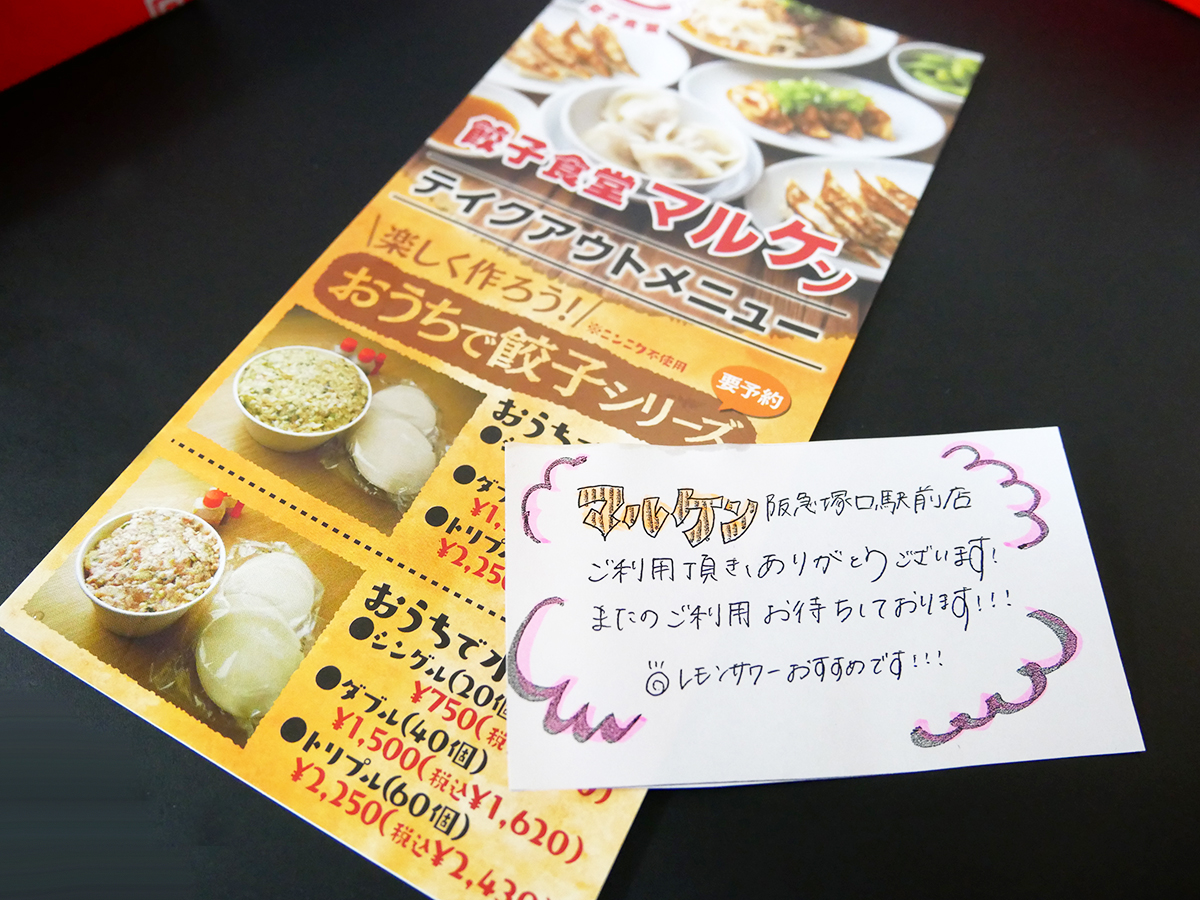 餃子食堂
餃子食堂マルケン
テイクアウトメニュー
楽しく作ろう!
※ニンニク不使用
おうちで餃子シリーズ
要予約
おうちで
●シ
●ダブ
¥1,
●トリプル
¥2,250
おうちで水
●シングル(20個
¥750(税
●ダブル(40個)
¥1,500(税込¥1,620)
●トリプル(60個)
¥2,250(税込¥2,430
マルケン 阪急塚口駅前店
ご利用頂き、ありがとうございます!
またのご利用お待ちしております!!!
レモンサワーおすすめです!!!